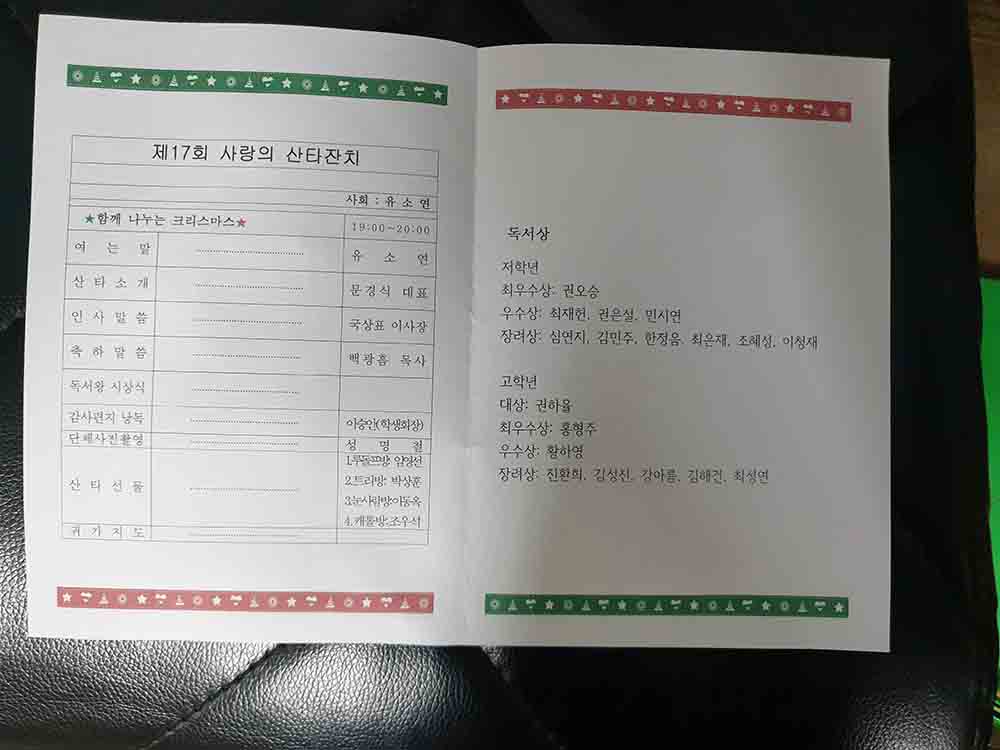 제17회 사랑의 산타잔치
사회 : 유 소 연
★함께 나누는 크리스마스★ 19:00~20:00
여 는 말 ........................ 유 소 연
산 타 소 개 ........................ 문경식 대표
인 사 말 씀 ........................ 국상표 이사장
축 하 말 씀 ........................ 백광흠 목사
독서왕 시상식 ........................
감사편지 낭독 ........................ 이승인(학생회장)
단체사진촬영 ........................ 성 명 철
산 타 선 물 ........................ 1.루돌프방 임영선
2.트리방: 박상훈
3.눈사람방:이동옥
4. 캐롤방:조우석
귀 가 지 도 ........................
독서상
저학년
최우수상: 권오승
우수상: 최재헌, 권은설, 민시연
장려상: 심연지, 김민주, 한정음, 최은재, 조혜성, 이청재
고학년
대상: 권하율
최우수상: 홍형주
우수상: 황하영
장려상: 진환희, 김성진, 강아름, 김해건, 최성연